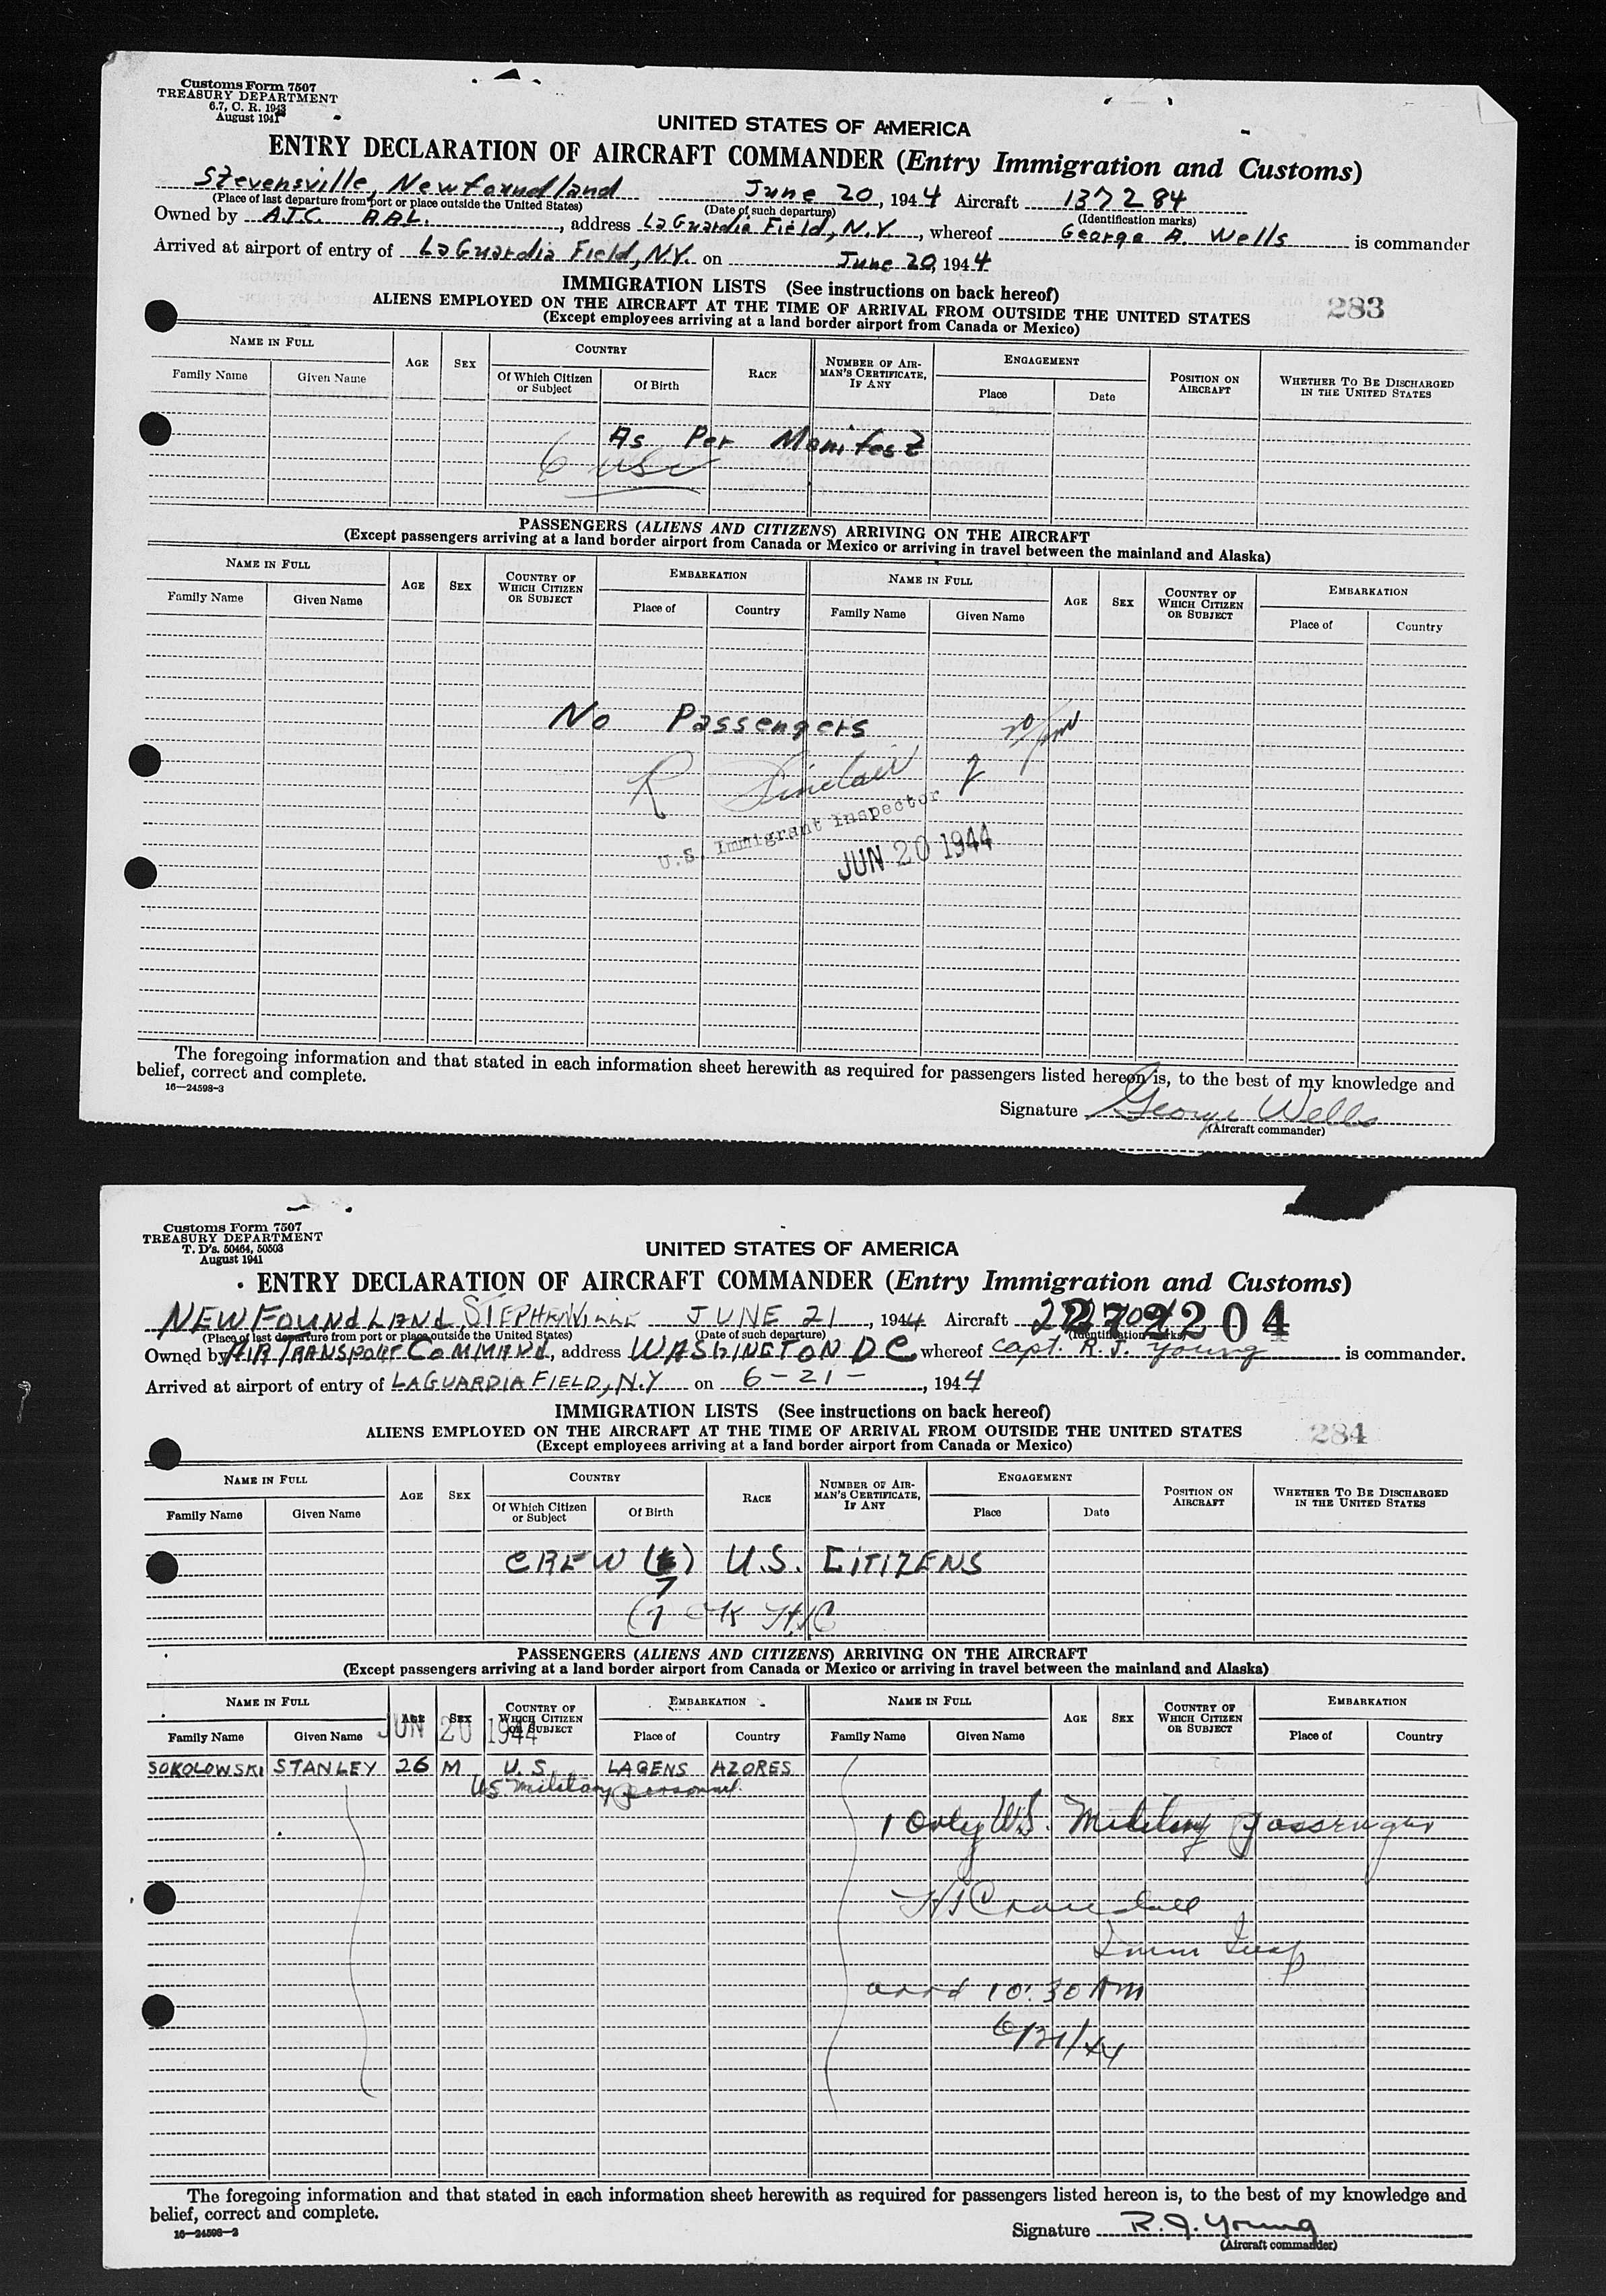 Customs Form 7507
TREASURY DEPARTMENT
6.7, C. R. 1943
August 1941
UNITED STATES OF AMERICA
ENTRY DECLARATION OF AIRCRAFT COMMANDER (Entry Immigration and Customs)
Stevensville, Newfoundland June 20, 1944 Aircraft 137284
(Place of last departure from port or place outside the United States) (Date of such departure) (Identification marks)
Owned by A.T.C. A.A.L., address LaGuardia Field, N.Y., whereof George A. Wells is commander
Arrived at airport of entry of LaGuardia Field, N.Y. on June 20, 1944
IMMIGRATION LISTS (See instructions on back hereof)
283
ALIENS EMPLOYED ON THE AIRCRAFT AT THE TIME OF ARRIVAL FROM OUTSIDE THE UNITED STATES
(Except employees arriving at a land border airport from Canada or Mexico)
NAME IN FULL AGE SEX COUNTRY RACE NUMBER OF AIRMAN'S CERTIFICATE, IF ANY ENGAGEMENT POSITION ON AIRCRAFT WHETHER TO BE DISCHARGED IN THE UNITED STATES
Family Name Given Name Of Which Citizen or Subject Of Birth Place Date
As Per Manifest
6 USC
PASSENGERS (ALIENS AND CITIZENS) ARRIVING ON THE AIRCRAFT
(Except passengers arriving at a land border airport from Canada or Mexico or arriving in travel between the mainland and Alaska)
NAME IN FULL AGE SEX COUNTRY OF WHICH CITIZEN OR SUBJECT EMBARKATION NAME IN FULL AGE SEX COUNTRY OF WHICH CITIZEN OR SUBJECT EMBARKATION
Family Name Given Name Place of Country Family Name Given Name Place of Country
No Passengers
R Sinclair
U.S. Immigrant Inspector
JUN 20 1944
The foregoing information and that stated in each information sheet herewith as required for passengers listed hereon is, to the best of my knowledge and
belief, correct and complete.
16—24598-3
Signature George Wells
(Aircraft commander)
Customs Form 7507
TREASURY DEPARTMENT
T. D's. 50464, 50503
August 1941
UNITED STATES OF AMERICA
ENTRY DECLARATION OF AIRCRAFT COMMANDER (Entry Immigration and Customs)
NEWFOUNDLAND, STEPHENVILLE JUNE 21, 1944 Aircraft 272204
(Place of last departure from port or place outside the United States) (Date of such departure) (Identification marks)
Owned by AIR TRANSPORT COMMAND, address WASHINGTON D C whereof Capt. R. J. Young is commander.
Arrived at airport of entry of LAGUARDIA FIELD, N.Y on 6-21-, 1944
IMMIGRATION LISTS (See instructions on back hereof)
284
ALIENS EMPLOYED ON THE AIRCRAFT AT THE TIME OF ARRIVAL FROM OUTSIDE THE UNITED STATES
(Except employees arriving at a land border airport from Canada or Mexico)
NAME IN FULL AGE SEX COUNTRY RACE NUMBER OF AIRMAN'S CERTIFICATE, IF ANY ENGAGEMENT POSITION ON AIRCRAFT WHETHER TO BE DISCHARGED IN THE UNITED STATES
Family Name Given Name Of Which Citizen or Subject Of Birth Place Date
CREW ( ) U.S. CITIZENS
7
(7 OK HJC
PASSENGERS (ALIENS AND CITIZENS) ARRIVING ON THE AIRCRAFT
(Except passengers arriving at a land border airport from Canada or Mexico or arriving in travel between the mainland and Alaska)
NAME IN FULL AGE SEX COUNTRY OF WHICH CITIZEN OR SUBJECT EMBARKATION NAME IN FULL AGE SEX COUNTRY OF WHICH CITIZEN OR SUBJECT EMBARKATION
Family Name Given Name Place of Country Family Name Given Name Place of Country
JUN 20 1944
SOKOLOWSKI STANLEY 26 M U.S. LAGENS AZORES
U.S. Military personnel.
1 Only U.S. Military passenger
HJ Crandall
Imm Insp
arrd 10:30 AM
6/21/44
The foregoing information and that stated in each information sheet herewith as required for passengers listed hereon is, to the best of my knowledge and
belief, correct and complete.
16—24598-2
Signature R. J. Young
(Aircraft commander)